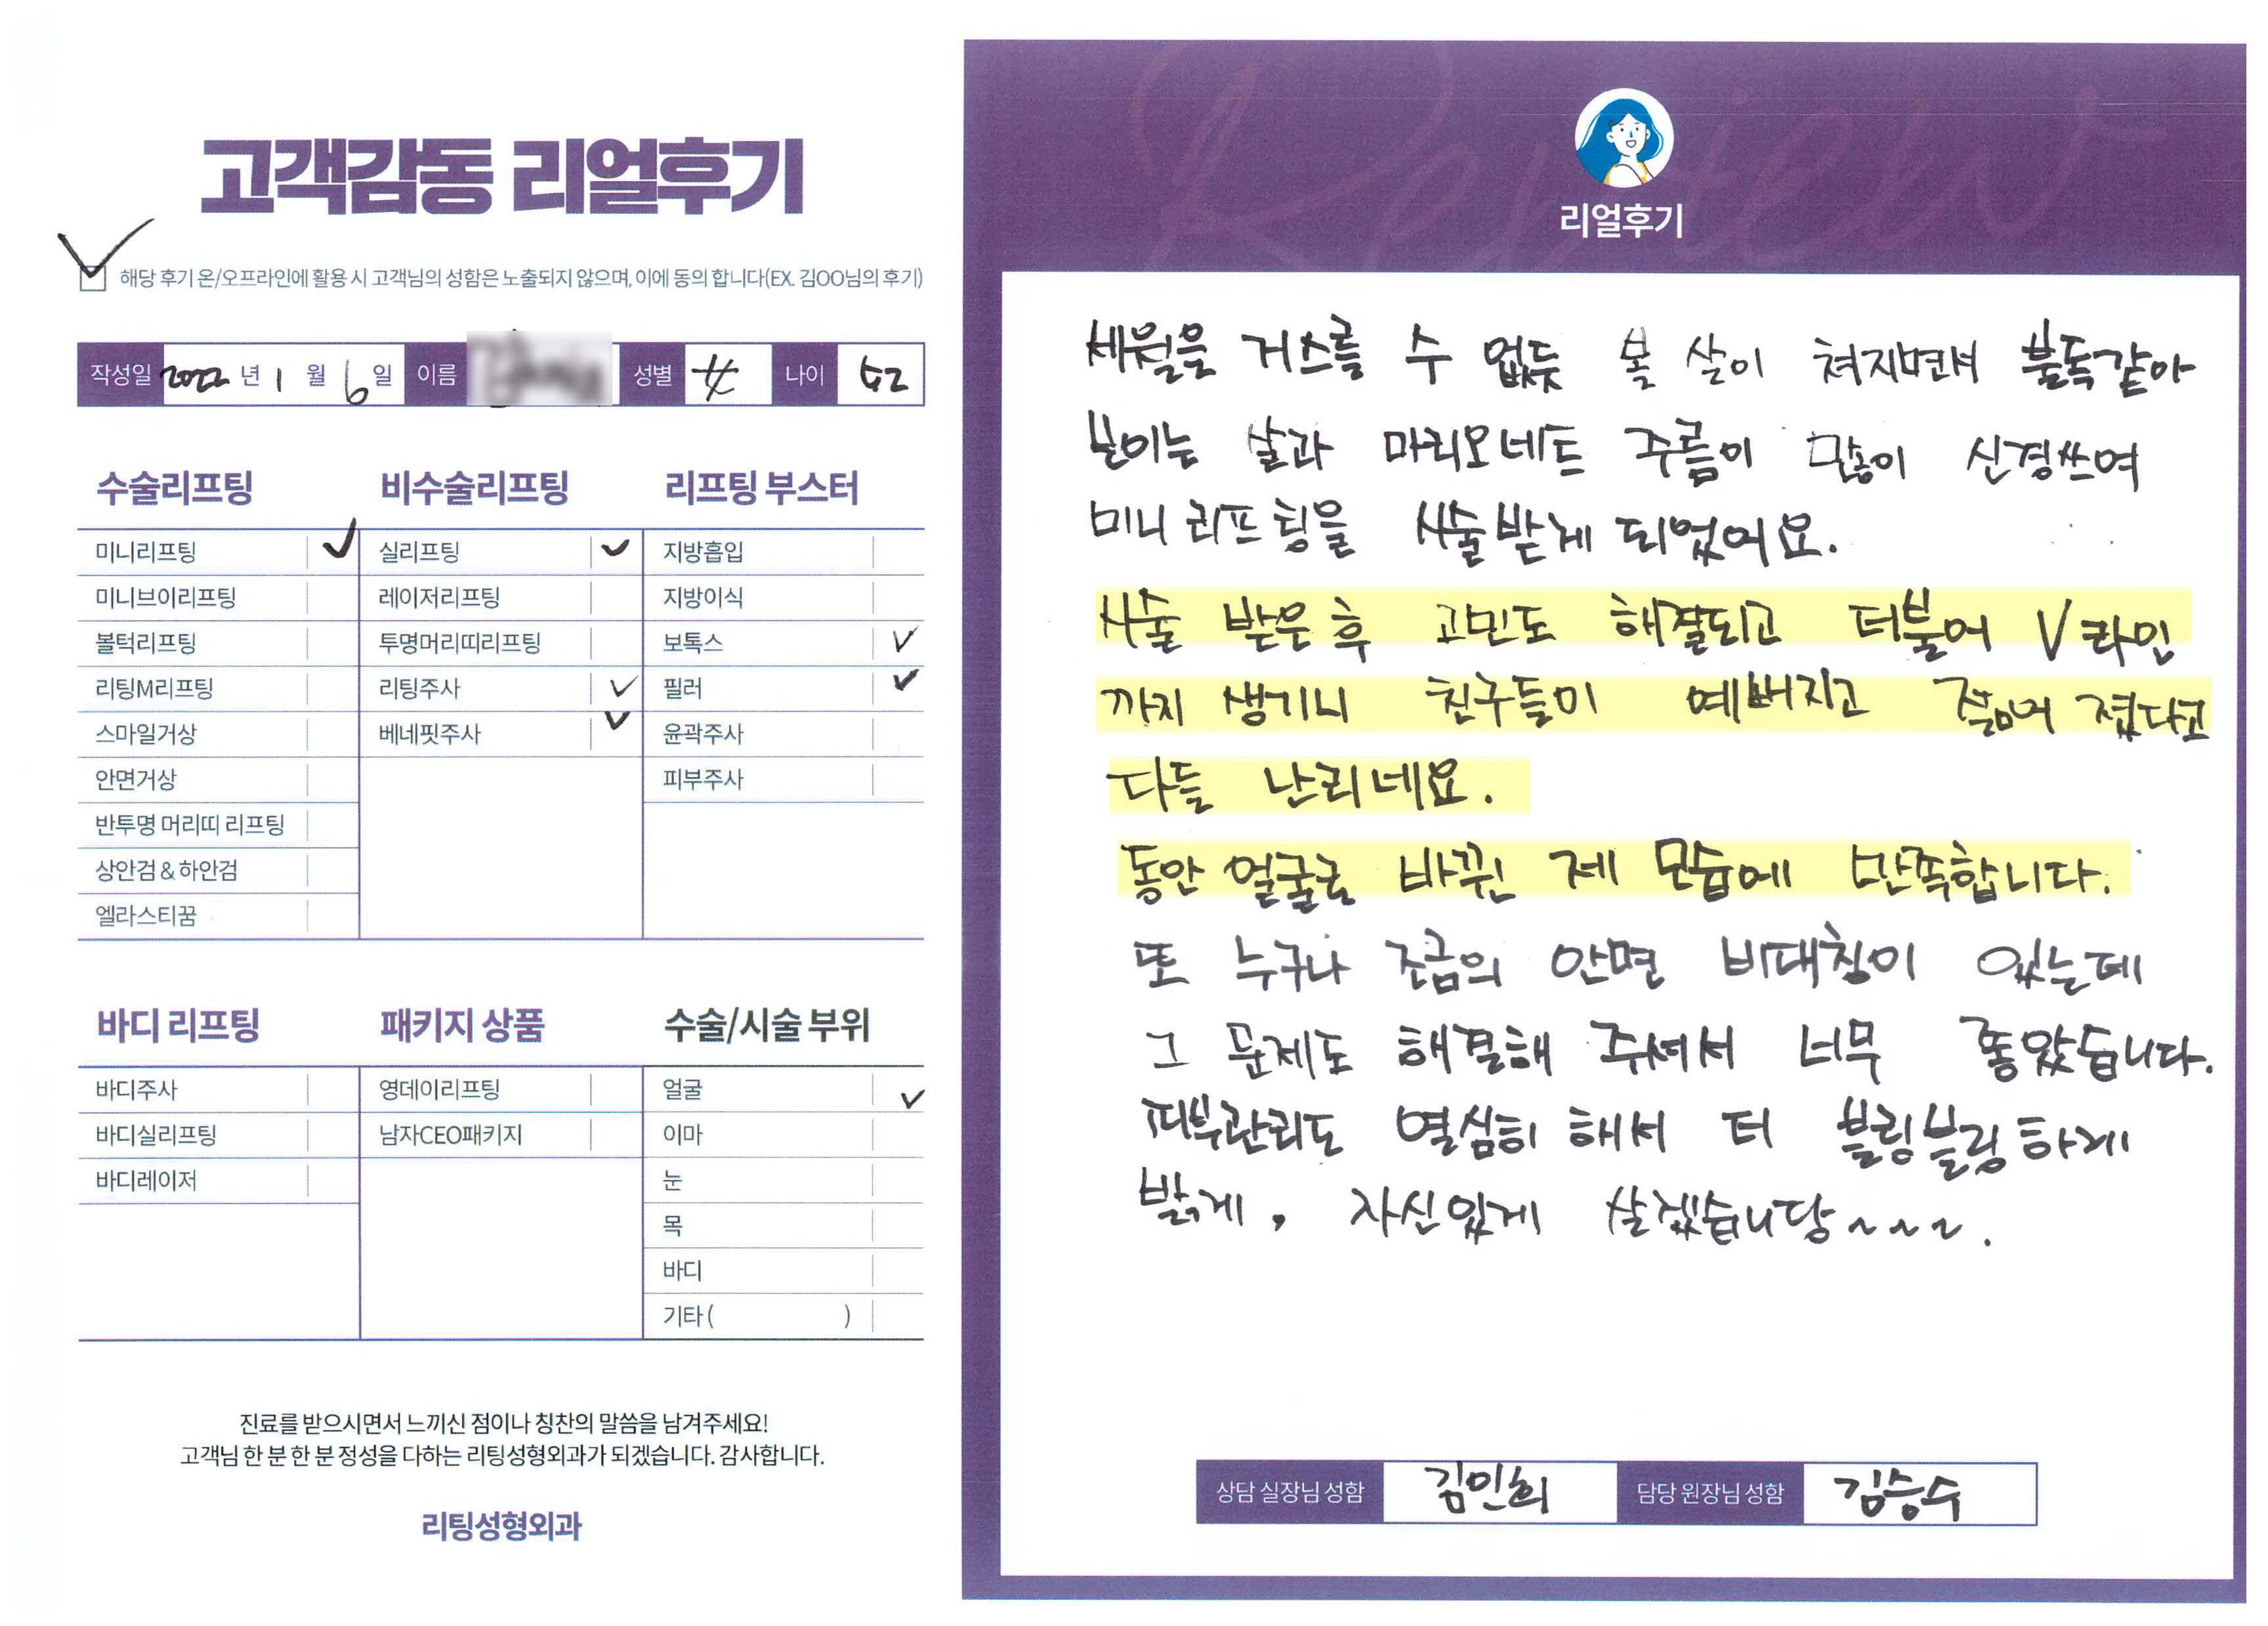 고객감동 리얼후기
해당 후기 온/오프라인에 활용 시 고객님의 성함은 노출되지 않으며, 이에 동의 합니다(EX. 김OO님의 후기)
작성일 2022 년 1 월 6 일 이름 성별 女 나이 52
수술리프팅 비수술리프팅 리프팅 부스터
미니리프팅 ✓ 실리프팅 ✓ 지방흡입
미니브이리프팅 레이저리프팅 지방이식
볼턱리프팅 투명머리띠리프팅 보톡스 ✓
리팅M리프팅 리팅주사 ✓ 필러 ✓
스마일거상 베네핏주사 ✓ 윤곽주사
안면거상 피부주사
반투명 머리띠 리프팅
상안검 & 하안검
엘라스티꿈
바디 리프팅 패키지 상품 수술/시술 부위
바디주사 영데이리프팅 얼굴 ✓
바디실리프팅 남자CEO패키지 이마
바디레이저 눈
목
바디
기타 ( )
진료를 받으시면서 느끼신 점이나 칭찬의 말씀을 남겨주세요!
고객님 한 분 한 분 정성을 다하는 리팅성형외과가 되겠습니다. 감사합니다.
리팅성형외과
Review
리얼후기
세월은 거스를 수 없듯 볼 살이 쳐지면서 불독같아
보이는 살과 마리오네트 주름이 많이 신경쓰여
미니 리프팅을 시술받게 되었어요.
시술 받은 후 고민도 해결되고 더불어 V라인
까지 생기니 친구들이 예뻐지고 젊어 졌다고
다들 난리네요.
동안 얼굴로 바뀐 제 모습에 만족합니다.
또 누구나 조금의 안면 비대칭이 있는데
그 문제도 해결해 주셔서 너무 좋았습니다.
피부관리도 열심히 해서 더 블링블링하게
밝게, 자신있게 살겠습니당~~~.
상담 실장님 성함 김민희 담당 원장님 성함 김승수